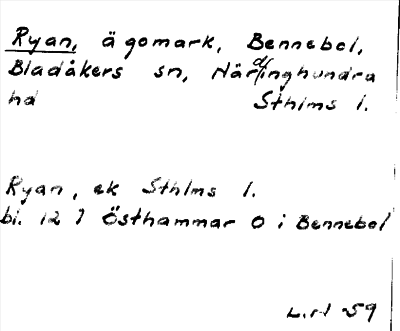 Ryan, ägomark, Bennebol,
Bladåkers sn, Närdinghundra
hd Sthlms l.
Ryan, ek Sthlms l.
bl. 12 Östhammar O i Bennebol
59